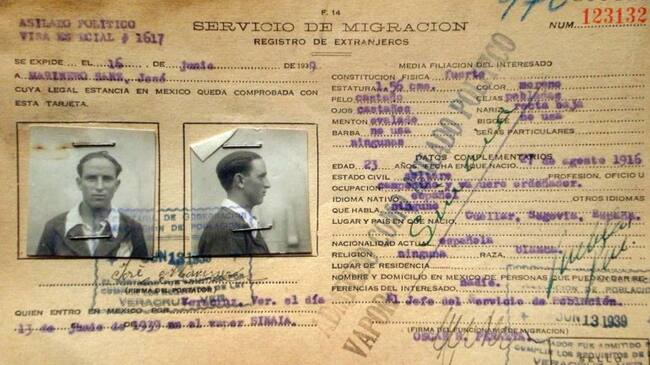 F. 14
ASILADO POLITICO
VISA ESPECIAL # 1617
SERVICIO DE MIGRACION
REGISTRO DE EXTRANJEROS
NUM. 123132
SE EXPIDE EL 16 de junio de 1939
A MARINERO SANZ, José
CUYA LEGAL ESTANCIA EN MEXICO QUEDA COMPROBADA CON
ESTA TARJETA.
MEDIA FILIACION DEL INTERESADO
CONSTITUCION FISICA fuerte
ESTATURA 1.56 cms. COLOR moreno
PELO castaño CEJAS pobladas
OJOS castaños NARIZ recta baja
MENTON ovalado BIGOTE no usa
BARBA no usa SEÑAS PARTICULARES
ningunas
DATOS COMPLEMENTARIOS
EDAD 23 AÑOS. FECHA EN QUE NACIO de agosto 1916
ESTADO CIVIL soltero PROFESION, OFICIO U
OCUPACION campesino y va
IDIOMA NATIVO OTROS IDIOMAS
QUE HABLA
LUGAR Y PAIS EN QUE NACIO Cuellar, Segovia, España.
NACIONALIDAD ACTUAL española
RELIGION ninguna RAZA Blanca
LUGAR DE RESIDENCIA
NOMBRE Y DOMICILIO EN MEXICO DE PERSONAS QUE PUEDAN DAR RE-
FERENCIAS DEL INTERESADO. Nadie.
El Jefe del Servicio de Población.
(FIRMA DEL FUNCIONARIO DE MIGRACION)
OSCAR R. PERALTA
ASILADO POLITICO
VAPOR
Sinaia
JUN 13 1939
VERACRUZ, VER.
QUIEN ENTRO EN MEXICO POR Veracruz, Ver. el día
13 de junio de 1939 en el vapor SINAIA
JUN 13 1939
SELLO